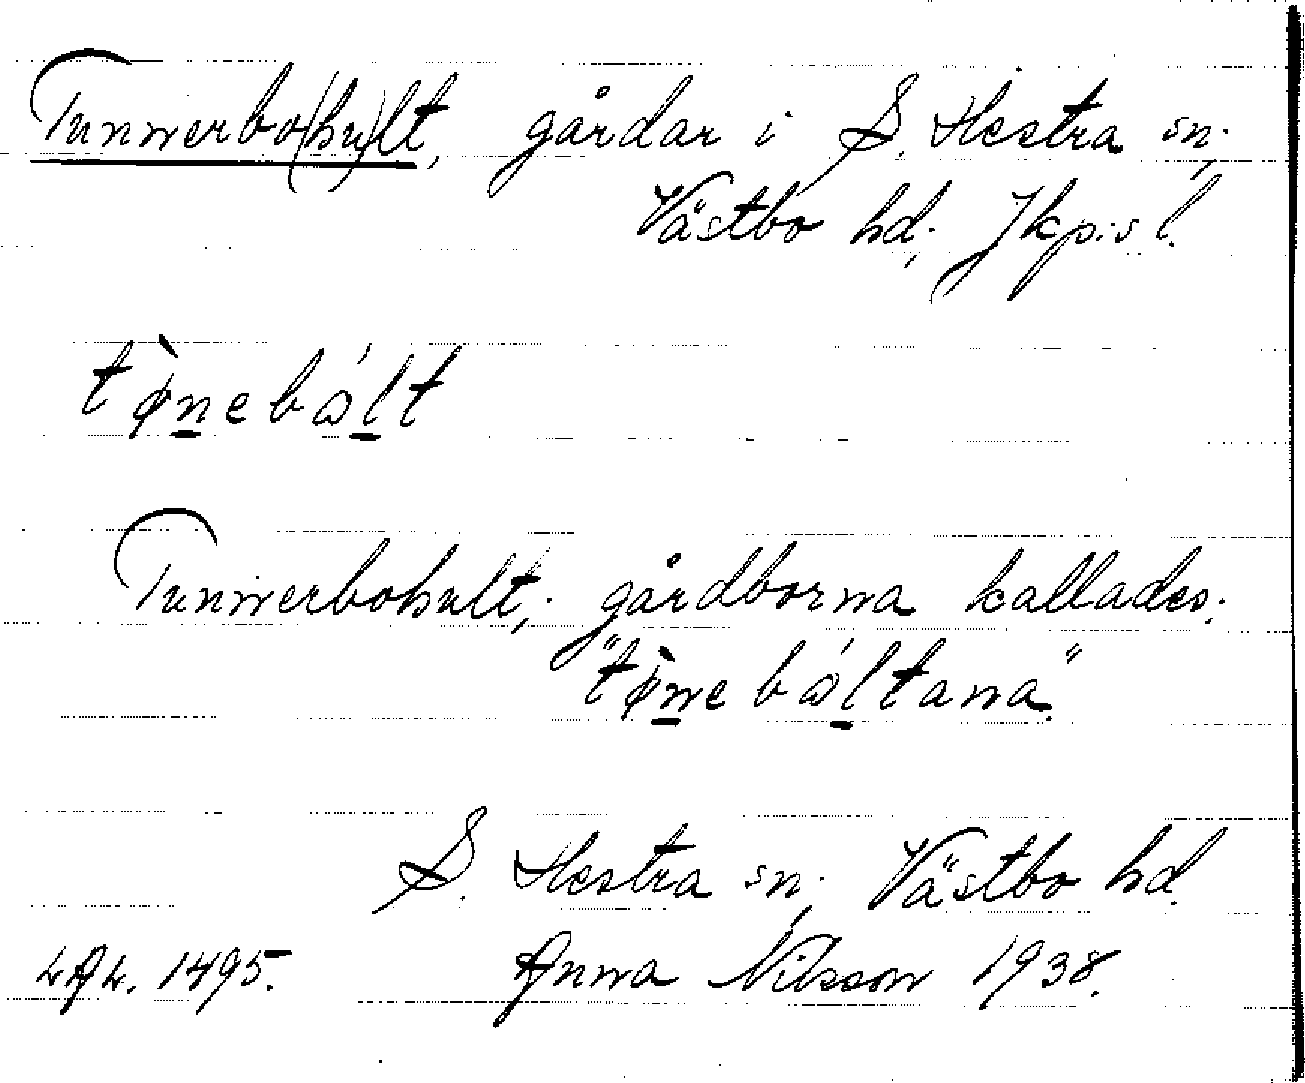 Tunnerbo(hu)lt, gårdar i S. Hestra sn;
Västbo hd; Jkp:s l.
tø̀nebɷ́lt
Tunnerbohult; gårdborna kallades:
"tø̀nebɷ́ltana".
S. Hestra sn; Västbo hd.
LAL. 1495. Anna Nilsson 1938.